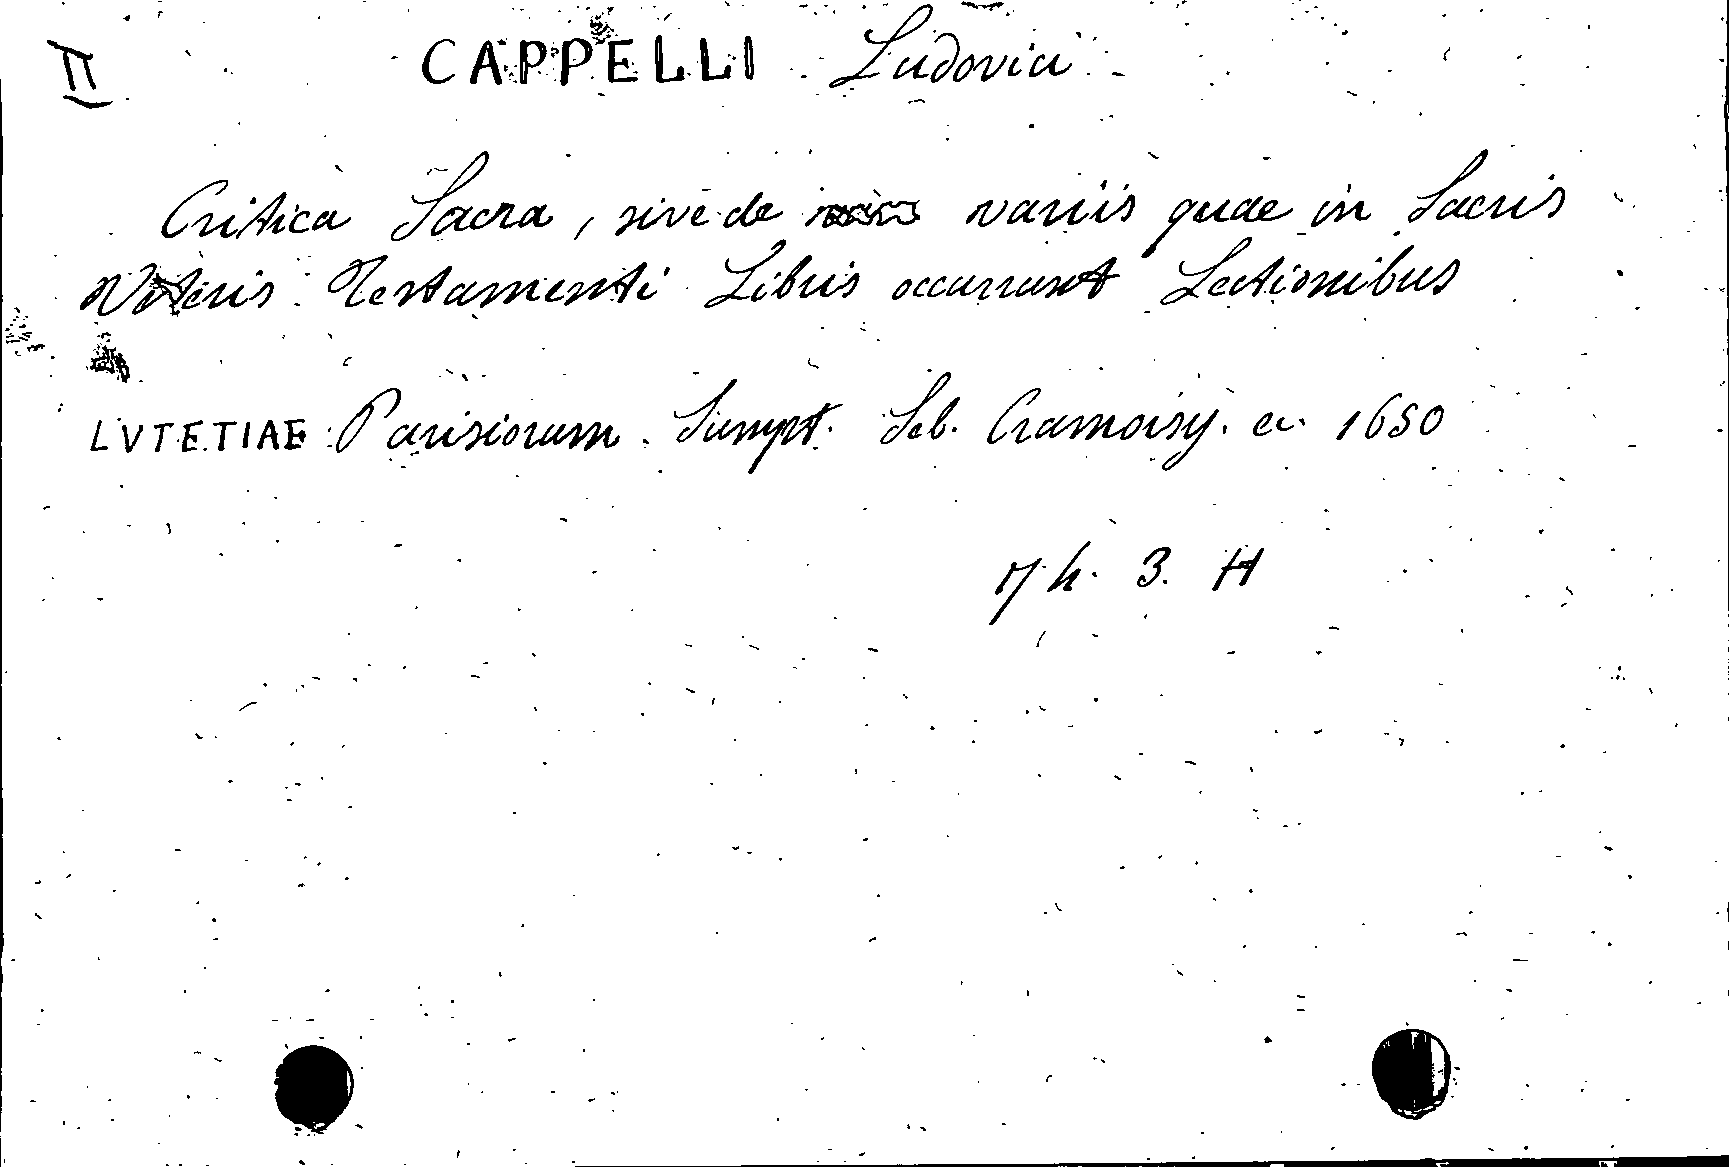 II CAPPELLI Ludovici
Critica Sacra, sive de variis quae in Sacris
Veteris Testamenti Libris occurrunt Lectionibus
LVTETIAE Parisiorum. Sumpt. Seb. Cramoisy. a. 1650
h. 3. H